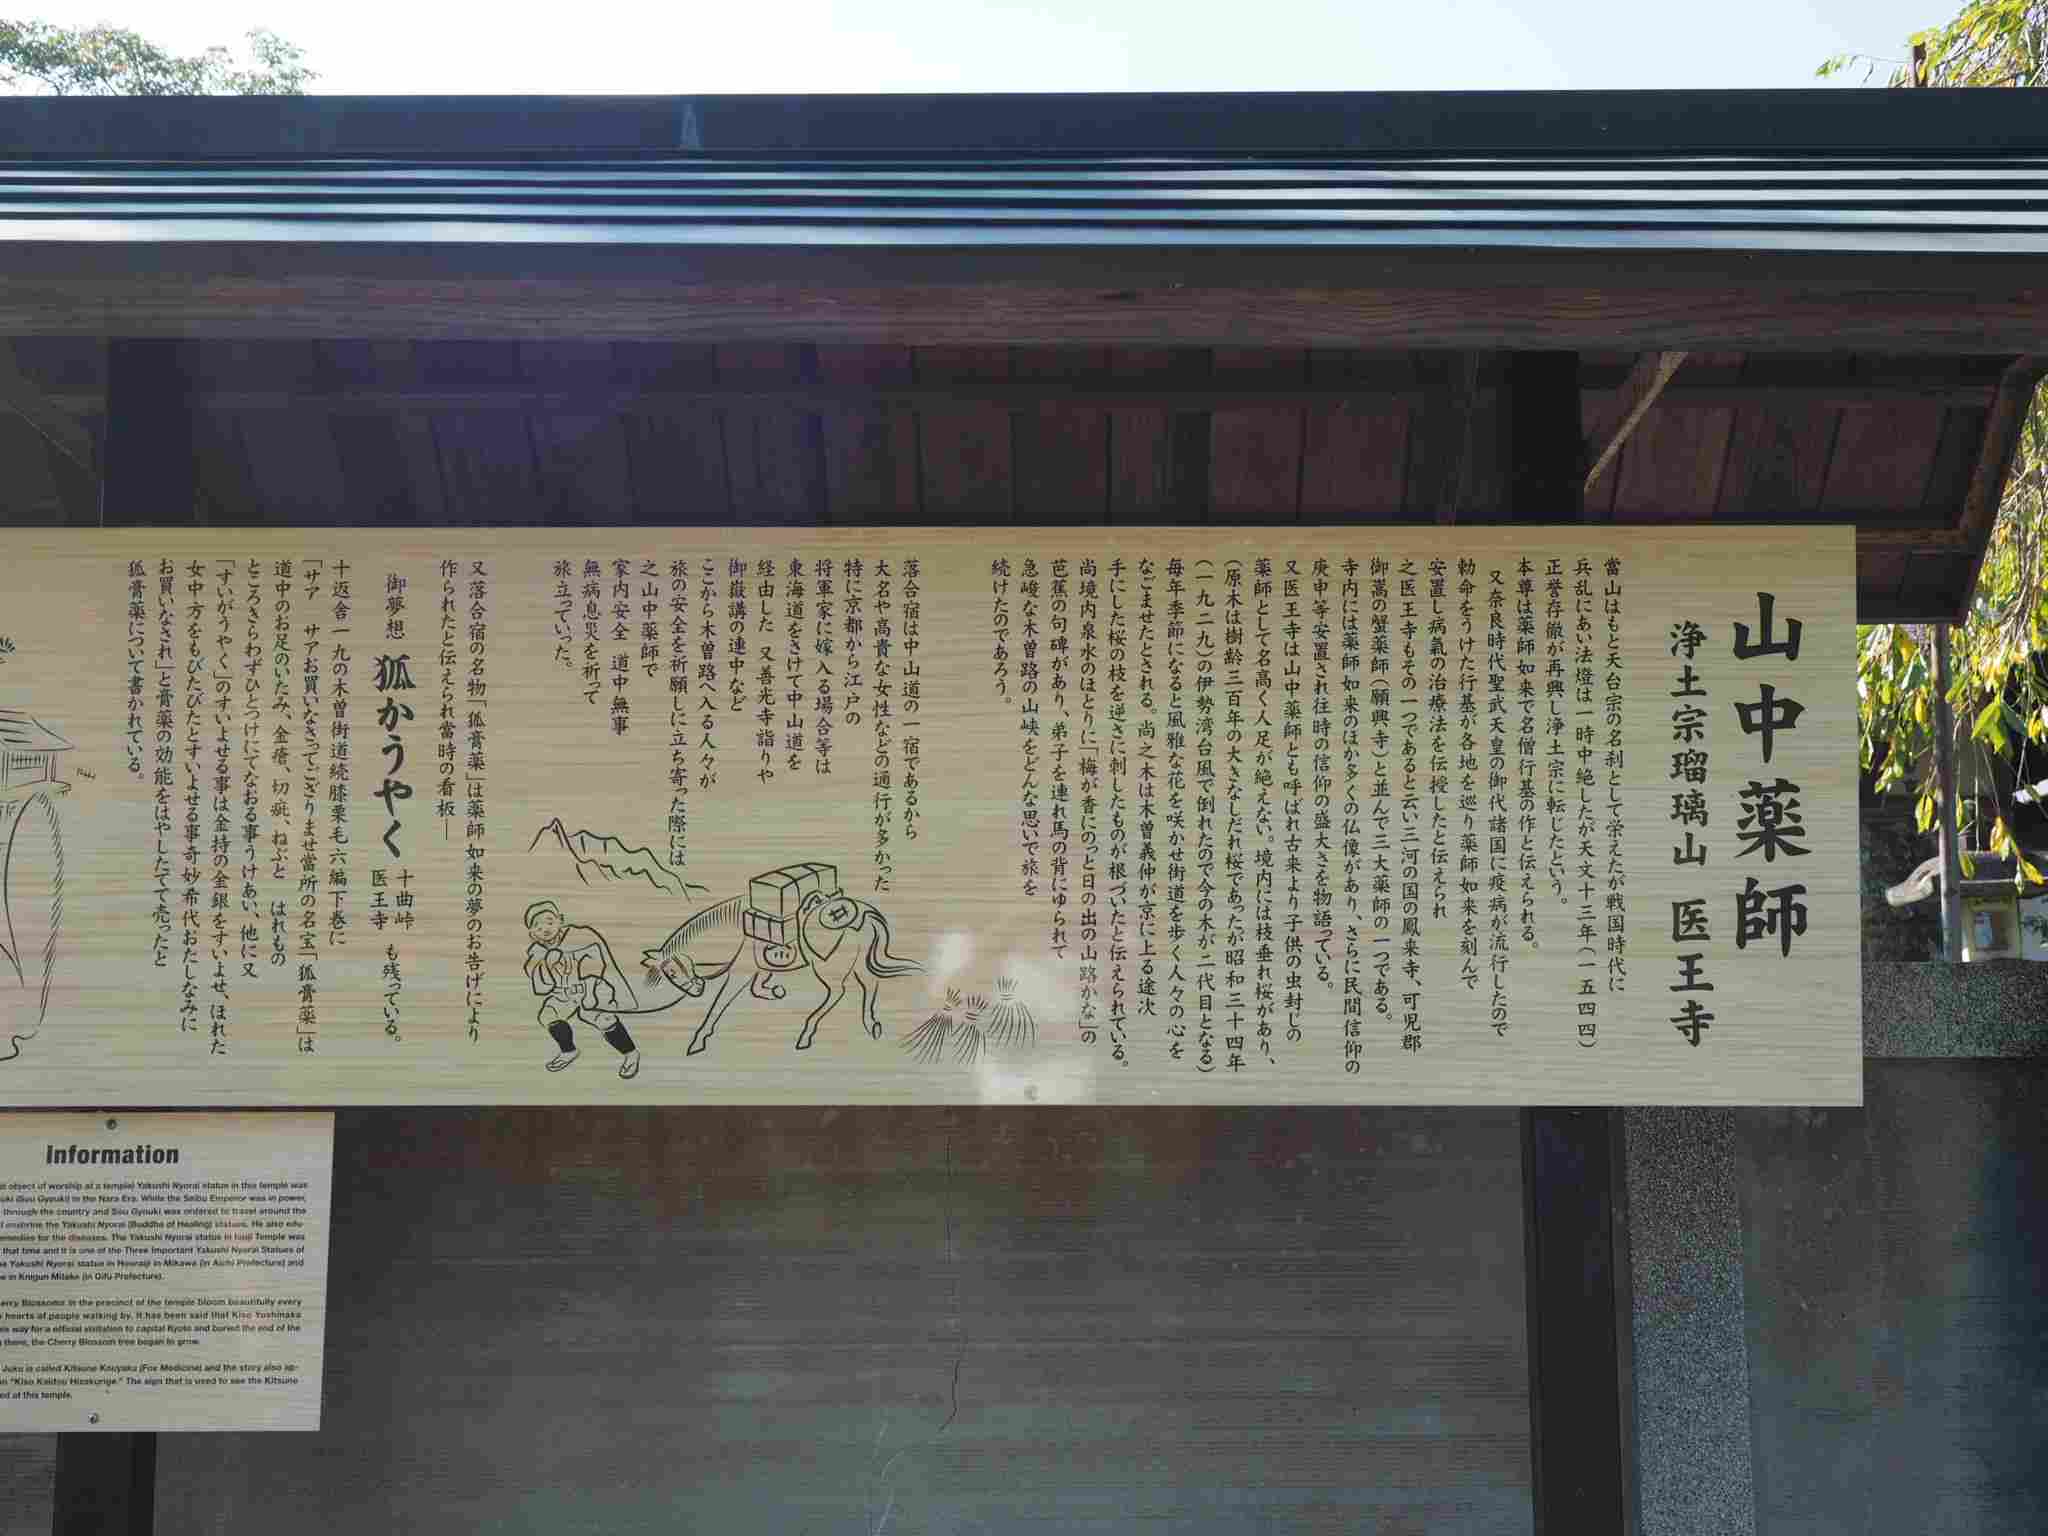 山中薬師
浄土宗瑠璃山 医王寺
當山はもと天台宗の名刹として栄えたが戦国時代に
兵乱にあい法燈は一時中絶したが天文十三年（一五四四）
正誉存徹が再興し浄土宗に転じたという。
本尊は薬師如来で名僧行基の作と伝えられる。
又奈良時代聖武天皇の御代諸国に疫病が流行したので
勅命をうけた行基が各地を巡り薬師如来を刻んで
安置し病氣の治療法を伝授したと伝えられ
之医王寺もその一つであると云い三河の国の鳳来寺、可児郡
御嵩の蟹薬師（願興寺）と並んで三大薬師の一つである。
寺内には薬師如来のほか多くの仏像があり、さらに民間信仰の
庚申等安置され往時の信仰の盛大さを物語っている。
又医王寺は山中薬師とも呼ばれ古来より子供の虫封じの
薬師として名高く人足が絶えない。境内には枝垂れ桜があり、
（原木は樹齢三百年の大きなしだれ桜であったが昭和三十四年
（一九二九）の伊勢湾台風で倒れたので今の木が二代目となる）
毎年季節になると風雅な花を咲かせ街道を歩く人々の心を
なごませたとされる。尚之木は木曽義仲が京に上る途次
手にした桜の枝を逆さに刺したものが根づいたと伝えられている。
尚境内泉水のほとりに「梅が香にのっと日の出の山路かな」の
芭蕉の句碑があり、弟子を連れ馬の背にゆられて
急峻な木曽路の山峡をどんな思いで旅を
続けたのであろう。
落合宿は中山道の一宿であるから
大名や高貴な女性などの通行が多かった
特に京都から江戸の
将軍家に嫁入る場合等は
東海道をさけて中山道を
経由した 又善光寺詣りや
御嶽講の連中など
ここから木曽路へ入る人々が
旅の安全を祈願しに立ち寄った際には
之山中薬師で
家内安全 道中無事
無病息災を祈って
旅立っていった。
又落合宿の名物「狐膏薬」は薬師如来の夢のお告げにより
作られたと伝えられ當時の看板―
御夢想 狐かうやく 十曲峠 医王寺 も残っている。
十返舎一九の木曽街道続膝栗毛六編下巻に
「サア サアお買いなさってござりませ當所の名宝「狐膏薬」は
道中のお足のいたみ、金瘡、切疵、ねぶと はれもの
ところきらわずひとつけにてなおる事うけあい、他に又
「すいがうやく」のすいよせる事は金持の金銀をすいよせ、ほれた
女中方をもぴたぴたとすいよせる事奇妙希代おたしなみに
お買いなされ」と膏薬の効能をはやしたてて売ったと
狐膏薬について書かれている。
Information
object of worship at a temple) Yakushi Nyorai statue in this temple was
(Sou Gyouki) in the Nara Era. While the Seibu Emperor was in power,
through the country and Sou Gyouki was ordered to travel around the
enshrine the Yakushi Nyorai (Buddha of Healing) statues. He also edu-
emedies for the diseases. The Yakushi Nyorai statue in Iouji Temple was
that time and it is one of the Three Important Yakushi Nyorai Statues of
Yakushi Nyorai statue in Houraiji in Mikawa (in Aichi Prefecture) and
in Knigun Mitake (in Gifu Prefecture).
erry Blossoms in the precinct of the temple bloom beautifully every
hearts of people walking by. It has been said that Kiso Yoshinaka
way for a official visitation to capital Kyoto and buried the end of the
there, the Cherry Blossom tree began to grow.
Juku is called Kitsune Kouyaku (Fox Medicine) and the story also ap-
"Kiso Kaidou Hizakurige." The sign that is used to see the Kitsune
ed at this temple.